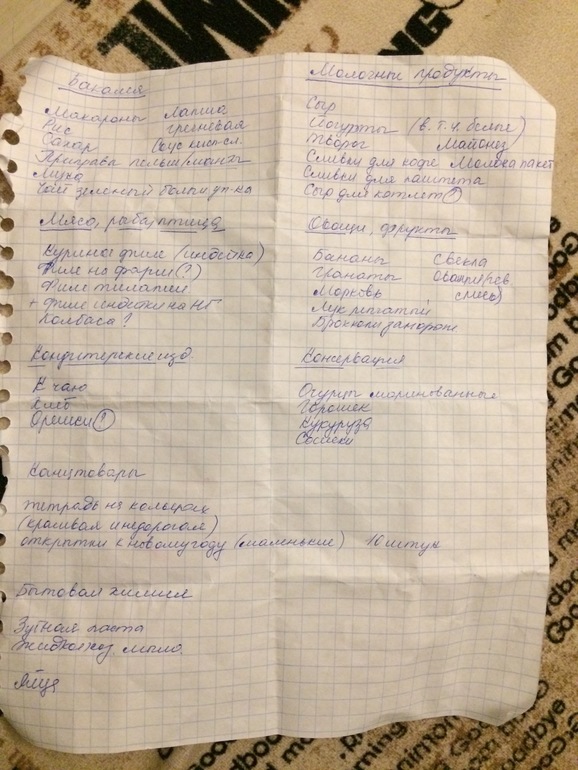 Бакалея
Макароны Лапша
Рис гречневая
Сахар Соус кисл-сл.
Приправа пельм/манты
Мука
Чай зеленый больш уп-ка
Мясо, рыба, птица
Куриное филе (индейка)
Филе на фарш (?)
Филе тилапии
+ Филе индейки на НГ
Колбаса ?
Кондитерские изд.
К чаю
Хлеб
Орешки (?)
Канцтовары
тетрадь на кольцах
(красивая и недорогая)
открытки к новому году (маленькие) 10 штук
Бытовая химия
Зубная паста
Жидкое хоз. мыло.
Яйца
Молочные продукты
Сыр
Йогурты (в. т. ч. белые)
Творог Майонез
Сливки для кофе Молоко пакет
Сливки для паштета
Сыр для котлет (?)
Овощи, фрукты
Бананы Свекла
Гранаты
Морковь смесь)
Лук репчатый
Брокколи заморож
Консервация
Огурцы маринованные
Горошек
Кукуруза
Сосиски
GOING
Goodbye